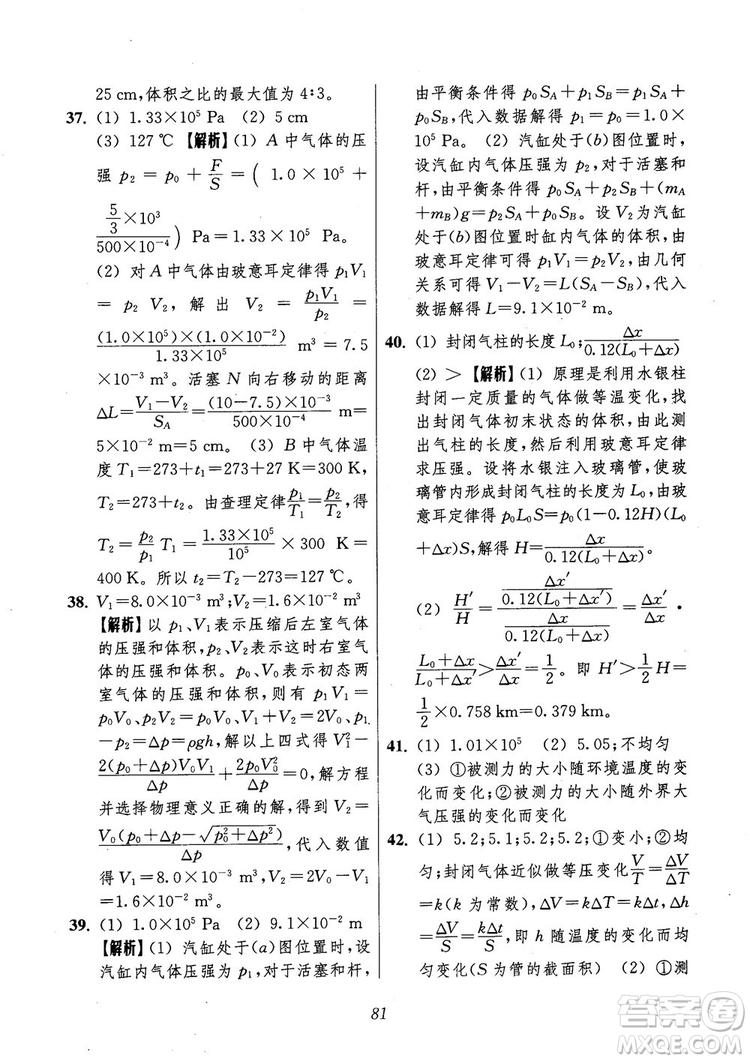 25 cm,体积之比的最大值为 4∶3。
37. (1) 1.33×10⁵ Pa (2) 5 cm
(3) 127 ℃ 【解析】(1) A 中气体的压
强 p₂=p₀+F/S=(1.0×10⁵+
(5/3×10³)/(500×10⁻⁴)) Pa=1.33×10⁵ Pa。
(2) 对 A 中气体由玻意耳定律得 p₁V₁
=p₂V₂, 解出 V₂=p₁V₁/p₂=
(1.0×10⁵)×(1.0×10⁻²)/(1.33×10⁵) m³=7.5
×10⁻³ m³。活塞 N 向右移动的距离
ΔL=(V₁−V₂)/S_A=(10−7.5)×10⁻³/(500×10⁻⁴) m=
5×10⁻² m=5 cm。(3) B 中气体温
度 T₁=273+t₁=273+27 K=300 K,
T₂=273+t₂。由查理定律p₁/T₁=p₂/T₂,得
T₂=p₂/p₁ T₁=(1.33×10⁵)/10⁵×300 K=
400 K。所以 t₂=T₂−273=127 ℃
38. V₁=8.0×10⁻³ m³;V₂=1.6×10⁻² m³
【解析】以 p₁、V₁ 表示压缩后左室气体
的压强和体积,p₂、V₂ 表示这时右室气
体的压强和体积。p₀、V₀ 表示初态两
室气体的压强和体积,则有 p₁V₁=
p₀V₀、p₂V₂=p₀V₀、V₁+V₂=2V₀、p₁
−p₂=Δp=ρgh,解以上四式得 V₁²−
2(p₀+Δp)V₀V₁/Δp+2V₀²=0,解方程
并选择物理意义正确的解,得到 V₁=
V₀(p₀+Δp−√(p₀²+Δp²))/Δp,代入数值
得 V₁=8.0×10⁻³ m³,V₂=2V₀−V₁
=1.6×10⁻² m³
39. (1) 1.0×10⁵ Pa (2) 9.1×10⁻² m
【解析】(1) 汽缸处于(a)图位置时,设
汽缸内气体压强为 p₁,对于活塞和杆,
由平衡条件得 p₀S_A+p₁S_B=p₁S_A+
p₀S_B,代入数据解得 p₁=p₀=1.0×10⁵
Pa。(2) 汽缸处于(b)图位置时,
设汽缸内气体压强为 p₂,对于活塞和
杆,由平衡条件得 p₀S_A+p₂S_B+(m_A
+m_B)g=p₂S_A+p₀S_B。设 V₂为汽缸
处于(b)图位置时缸内气体的体积,由
玻意耳定律可得 p₁V₁=p₂V₂,由几何
关系可得 V₁−V₂=L(S_A−S_B),代入
数据解得 L=9.1×10⁻² m。
40. (1) 封闭气柱的长度 L₀;Δx/0.12(L₀+Δx)
(2) > 【解析】(1) 原理是利用水银柱
封闭一定质量的气体做等温变化,找
出封闭气体初末状态的体积,由此测
出气柱的长度,然后利用玻意耳定律
求压强。设将水银注入玻璃管,使玻
璃管内形成封闭气柱的长度为 L₀,由玻
意耳定律得 p₀L₀S=p₀(1−0.12H)(L₀
+Δx)S,解得 H=Δx/0.12(L₀+Δx)。
(2) H′/H=(Δx′/0.12(L₀+Δx′))/(Δx/0.12(L₀+Δx))=Δx′/Δx·
(L₀+Δx)/(L₀+Δx′)>Δx′/Δx=1/2。即 H′>1/2 H=
1/2×0.758 km=0.379 km。
41. (1) 1.01×10⁵ (2) 5.05;不均匀
(3) ①被测力的大小随环境温度的变
化而变化②被测力的大小随外界大
气压强的变化而变化
42. (1) 5.2;5.1;5.2;5.2;①变小;②均
匀;封闭气体近似做等压变化V/T=ΔV/ΔT
=k(k 为常数),ΔV=kΔT=kΔt,h
=ΔV/S=kΔt/S,即 h 随温度的变化而均
匀变化(S 为管的截面积) (2) ①测
81
答案圈
MXQE.COM